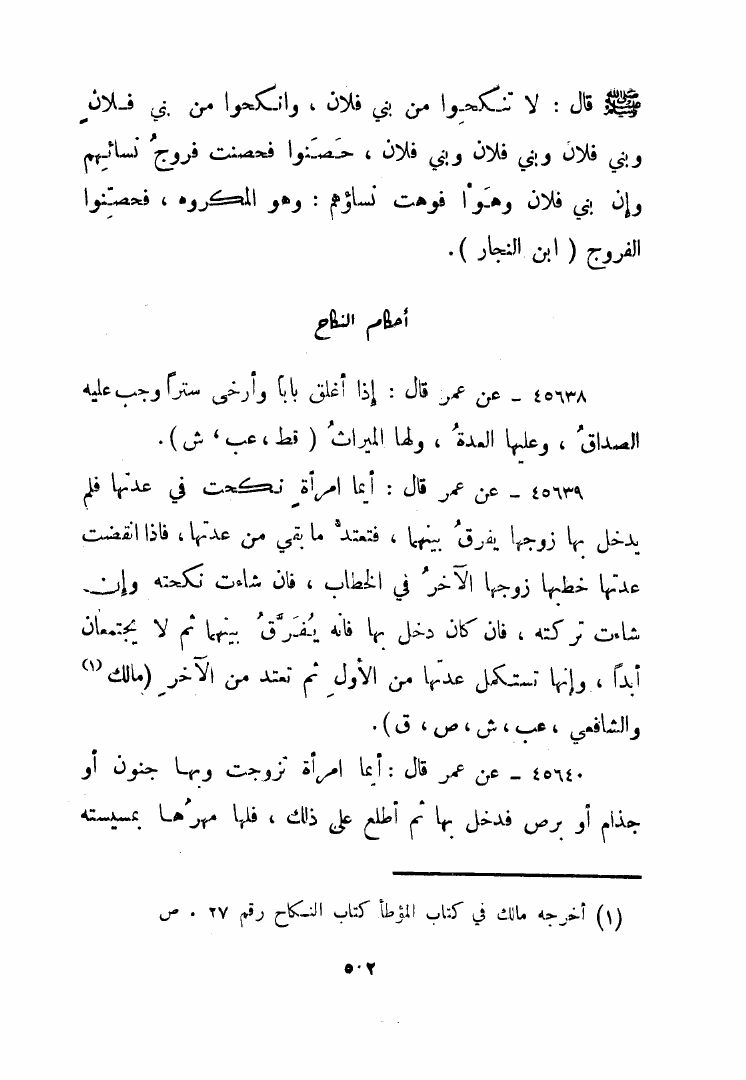 ﷺ قال : لا تنكحوا من بني فلان ، وانكحوا من بني فلانٍ
وبني فلان وبني فلان وبني فلان ، حَصَنوا فحصنت فروجُ نسائِهم
وإن بني فلان وهَوْا فوهت نساؤهم : وهو المكروه ، فحصِّنوا
الفروج ( ابن النجار ) .
أحكام النكاح
٤٥٦٣٨ - عن عمر قال : إذا أغلق باباً وأرخى ستراً وجب عليه
الصداقُ ، وعليها العدةُ ، ولها الميراثُ ( قط ، عب ، ش ) .
٤٥٦٣٩ - عن عمر قال : أيما امرأةٍ نكحت في عدتها فلم
يدخل بها زوجها يفرقُ بينهما ، فتعتدْ ما بقي من عدتها ، فاذا انقضت
عدتها خطبها زوجها الآخرُ في الخطاب ، فان شاءت نكحته وإن
شاءت تركته ، فان كان دخل بها فانه يُفَرَّقُ بينهما ثم لا يجتمعان
أبداً ، وإنها تستكمل عدتها من الأولِ ثم تعتد من الآخرِ (مالك (١)
والشافعي ، عب ، ش ، ص ، ق ) .
٤٥٦٤٠ - عن عمر قال : أيما امرأة تزوجت وبها جنون أو
جذام أو برص فدخل بها ثم أطلع على ذلك ، فلها مهرُها بمسيسته
(١) أخرجه مالك في كتاب المؤطأ كتاب النكاح رقم ٢٧ . ص
٥٠٢